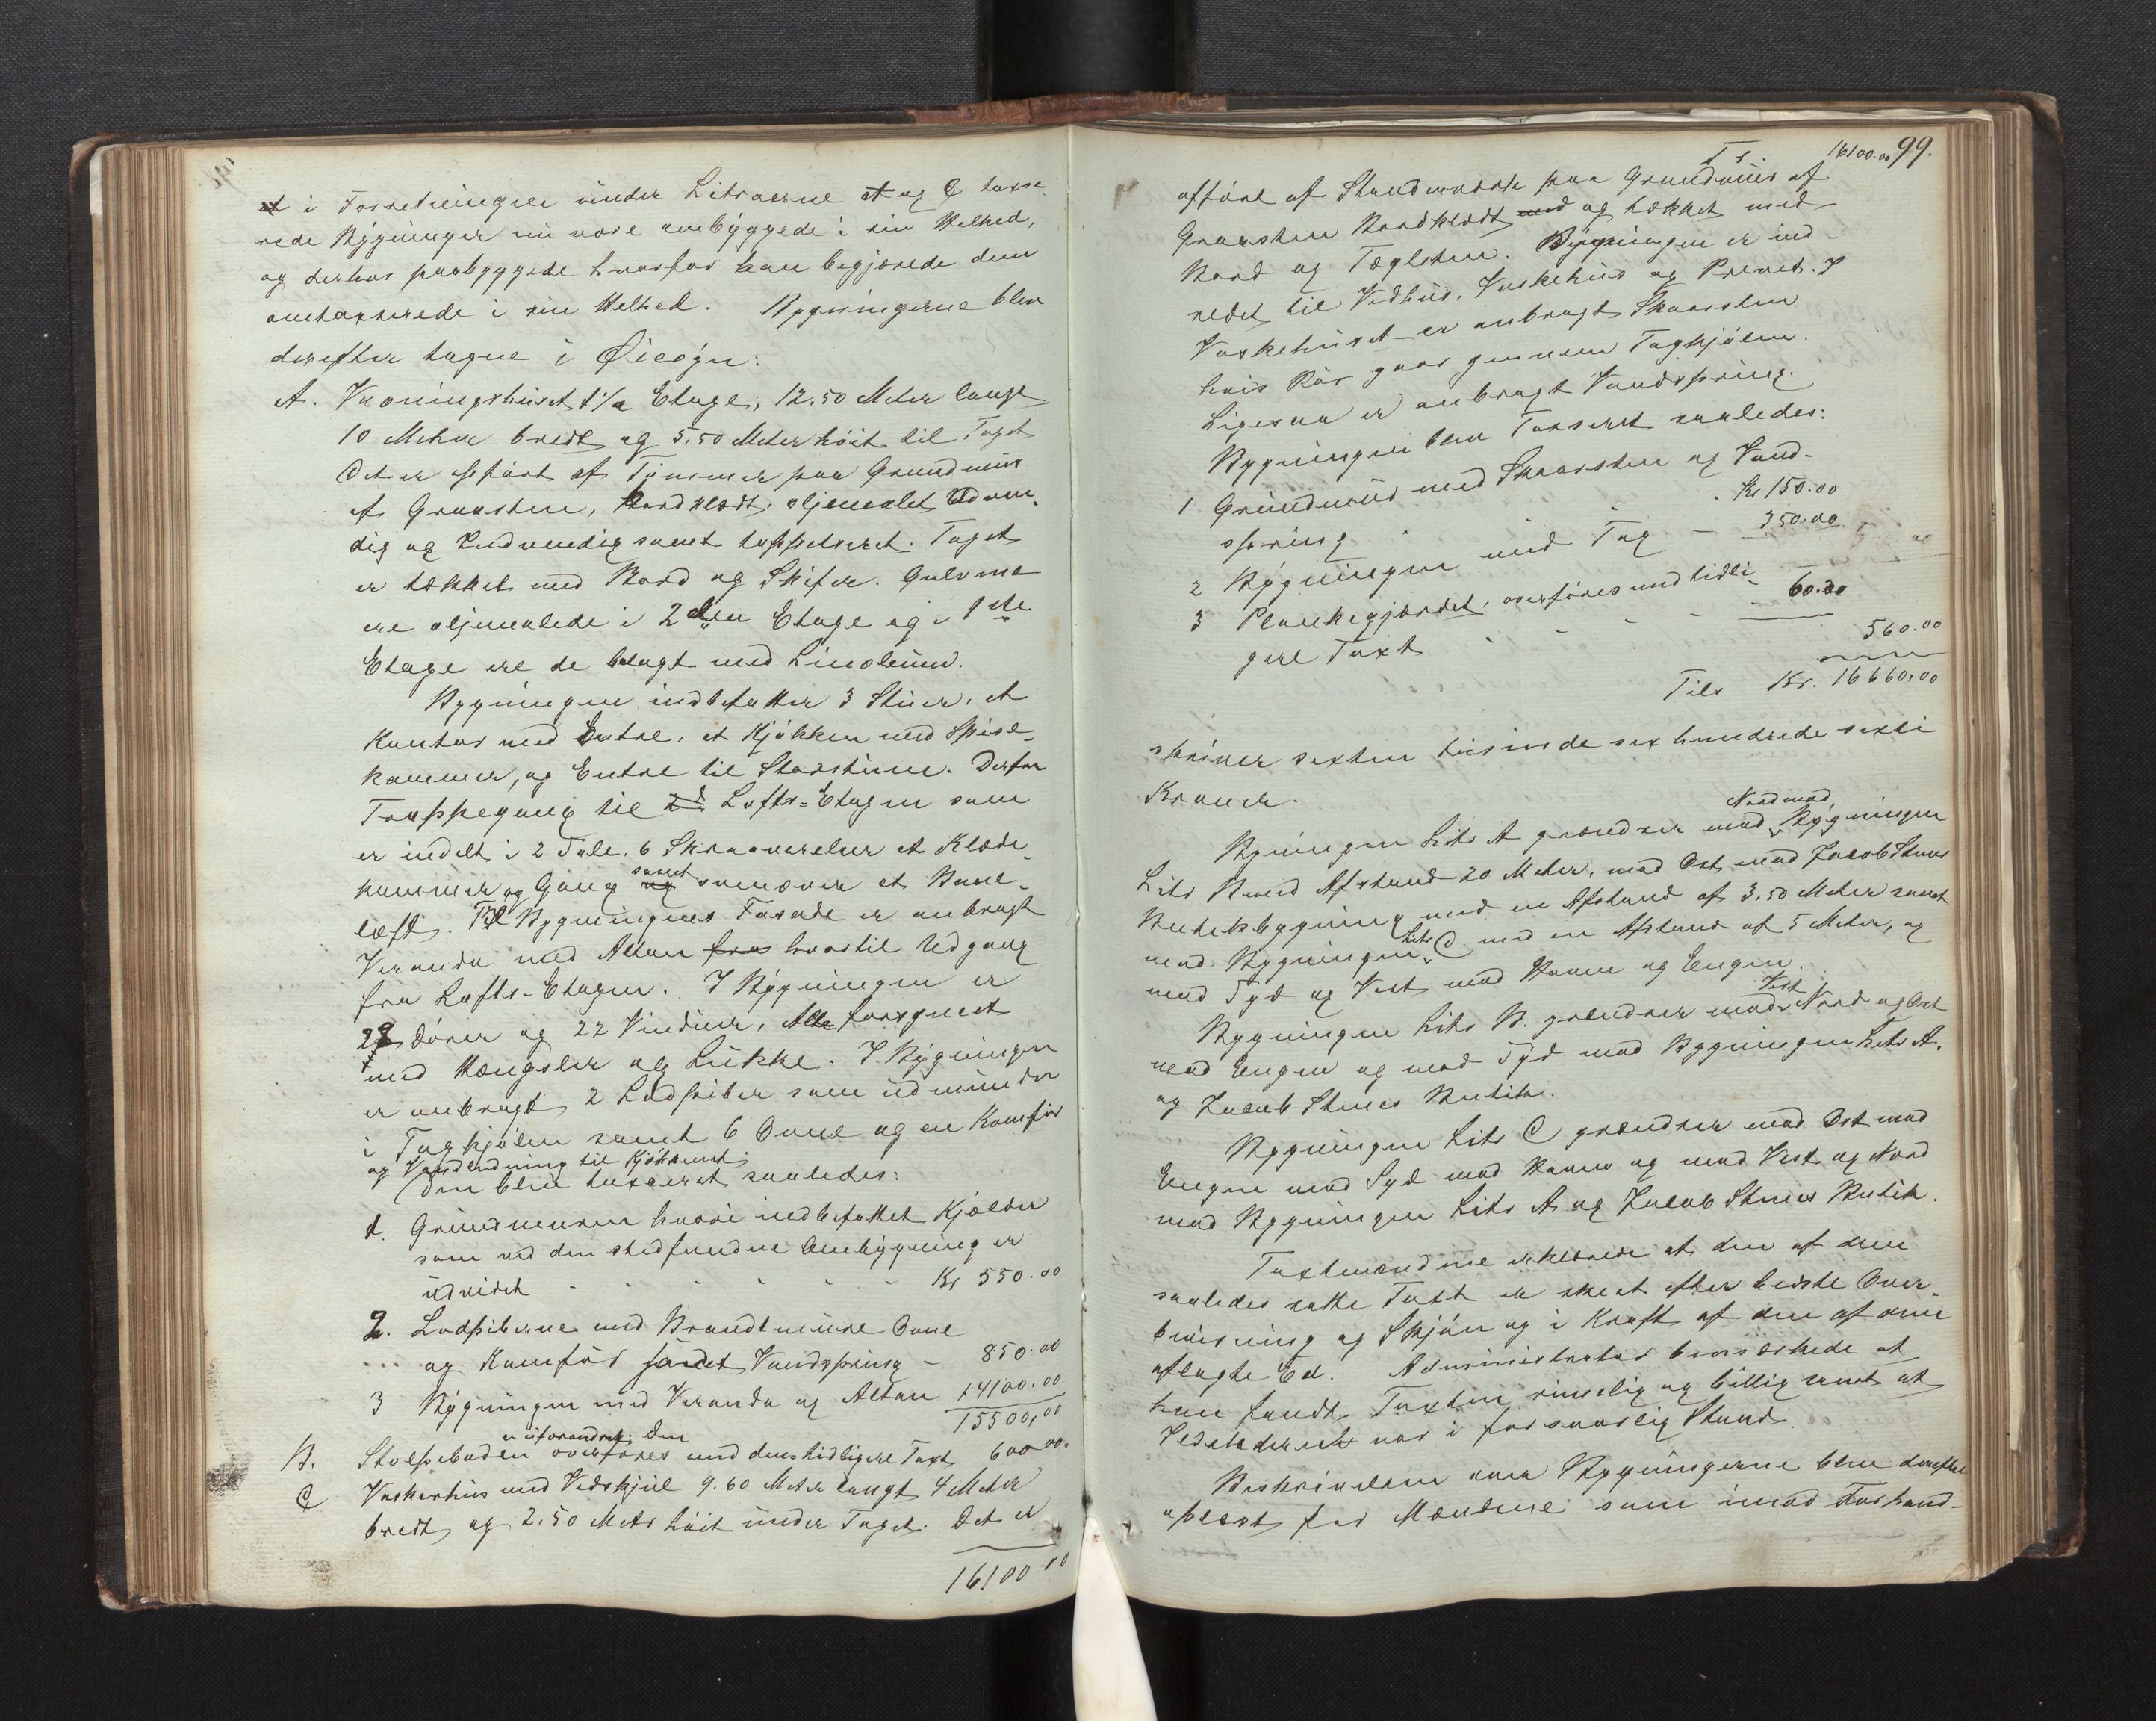 at i Forretningen under Litraerne A og C taxe-
rede Bygninger nu vare ombyggede i sin Helhed,
og derhos paabyggede hvorfor han begjærede dem
omtaxerede i sin Helhed. Bygningerne blev
derefter tagne i Øiesyn:
A. Vaaningshuset 1 1/2 Etage, 12.50 Meter langt
10 Meter bredt og 5,50 Meter høit til Taget
Det er opført af Tømmer paa Grundmur
af Graasten, bordklædt, oljemalet Udven-
dig og Indvendig samt tappetseret. Taget
er tækket med Bord og Skifer. Gulvene
ere oljemalede i 2den Etage og i 1ste
Etage ere de belagt med Linoleum.
Bygningen indbefatter 3 Stuer, et
Kontor med Entre, et Kjøkken med Spise-
kammer, og Entre til Storstuen. Derfra
Trappegang til 2d Lofts-Etagen som
er indelt i 2 Sale, 6 Skraaværelser et Klæde-
kammer og Gang og samt ovenover et Bane-
loft. Til Bygningens Fasade er anbragt
Veranda med Altan fra hvortil Udgang
fra Lofts-Etagen. I Bygningen er
28 Døre og 22 Vinduer, Alle forsynet
med Hængsler og Lukke. I Bygningen
er anbragt 2 Ludpiber som udmunder
i Taghjølen samt 6 Ovne og en Komfur
og Vandledning til Kjøkkenet.
Den blev taxeret saaledes:
1. Grundmuren hvori indbefattet Kjælder
som ved den stedfundne Ombygning er
udvidet - - - - - Kr 550.00
2. Ludpiberne med Brandtmure Ovne
og Komfur samt Vandspring - 850.00
3 Bygningen med Veranda og Altan 14100.00
15500,00
er uforandret. Den
B. Stolpeboden overføres med dens tidligere Taxt 600.00.
C Vaskerhus med Vedskjul 9.60 Meter langt 4 Meter
bredt og 2.50 Meter høit under Taget. Det er
16100.00
Tr. 16100.00 99.
opført af Standerværk paa Grundmur af
Graasten Bordklædt med og tækket med
Bord og Taglsten. Bygningen er ind-
redet til Vedhus, Vaskehus og Privet. I
Vaskehuset er anbragt Skorsten
hvis Rør gaar gjennem Taghjølen.
Ligesaa er anbragt Vandspring.
Bygningen blev Taxeret saaledes:
1 Grundmur med Skorsten og Vand-
spring - Kr 150.00
2 Bygningen med Tag - 350.00
3 Plankegjærdet, overføres med tidli-
gere Taxt - - - - 60.00
560.00
Tils Kr. 16660,00
skriver sexten tusinde sex hundrede sexti
Kroner.
Bygningen Litr A grændser mod Nord mod Bygningen
Litr B med Afstand 20 Meter, mod Ost mod Jacob Stenes
Butiksbygning med en Afstand af 3,50 Meter samt
mod Bygningen Litr C med en Afstand af 5 Meter, og
mod Syd og Vest mod Haven og Engen.
Bygningen Litr B. grændser mod Vest Nord og Ost
mod Engen og mod Syd mod Bygningen Litr A.
og Jacob Stenes Butik.
Bygningen Litr C grændser mod Ost mod
Engen mod Syd mod Haven og mod Vest og Nord
mod Bygningen Litr A og Jacob Stenes Butik.
Taxtmændene erklærede at den af dem
saaledes satte Taxt er skeet efter bedste Over-
bevisning og Skjøn og i Kraft af den af dem
aflagte Ed. Administrator bemærkede at
han fandt Taxten rimelig og billig samt at
Ildstederne var i forsvarlig Stand.
Beskrivelsen over Bygningerne blev derefter
oplæst for Mændene som imod Forhand-